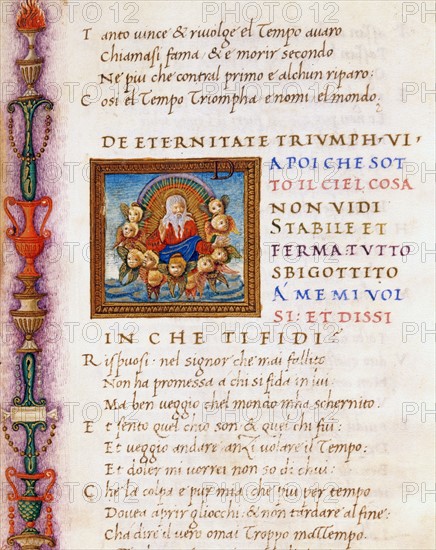 Tanto vince & rivolge el Tempo avaro
Chiamasi fama & è morir secondo
Ne piu che contral primo è alchun riparo:
Cosi el Tempo Triompha e nomi el mondo.
DE ETERNITATE TRIVMPH·VI·
D
A POI CHE SOT
TO IL CIEL COSA
NON VIDI
STABILE ET
FERMA: TVTTO
SBIGOTTITO
A ME MI VOL
SI: ET DISSI
IN CHE TI FIDI
Rispuosi: nel signor che mai fallito
Non ha promessa a chi si fida in lui:
Ma ben veggio chel mondo mha schernito:
Et sento quel chio son: & quel chi fui:
Et veggio andare anzi volare il Tempo:
Et doler mi vorrei non so di chui:
Che la colpa e pur mia che piu per tempo
Dovea aprir gliocchi: & non tardare al fine:
Cha dire il vero omai Troppo mattempo: